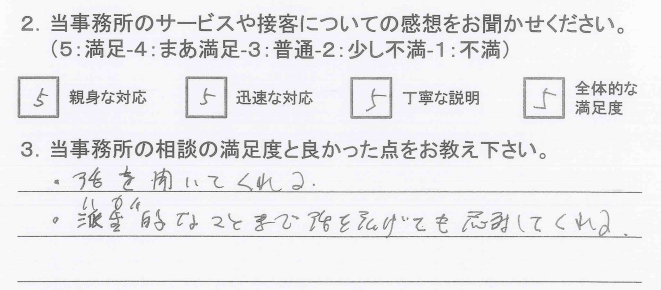 2. 当事務所のサービスや接客についての感想をお聞かせください。
（5：満足-4：まあ満足-3：普通-2：少し不満-1：不満）
5 親身な対応 5 迅速な対応 5 丁寧な説明 5 全体的な満足度
3. 当事務所の相談の満足度と良かった点をお教え下さい。
・話を聞いてくれる.
・派生的なことまで話を広げても応対してくれる.